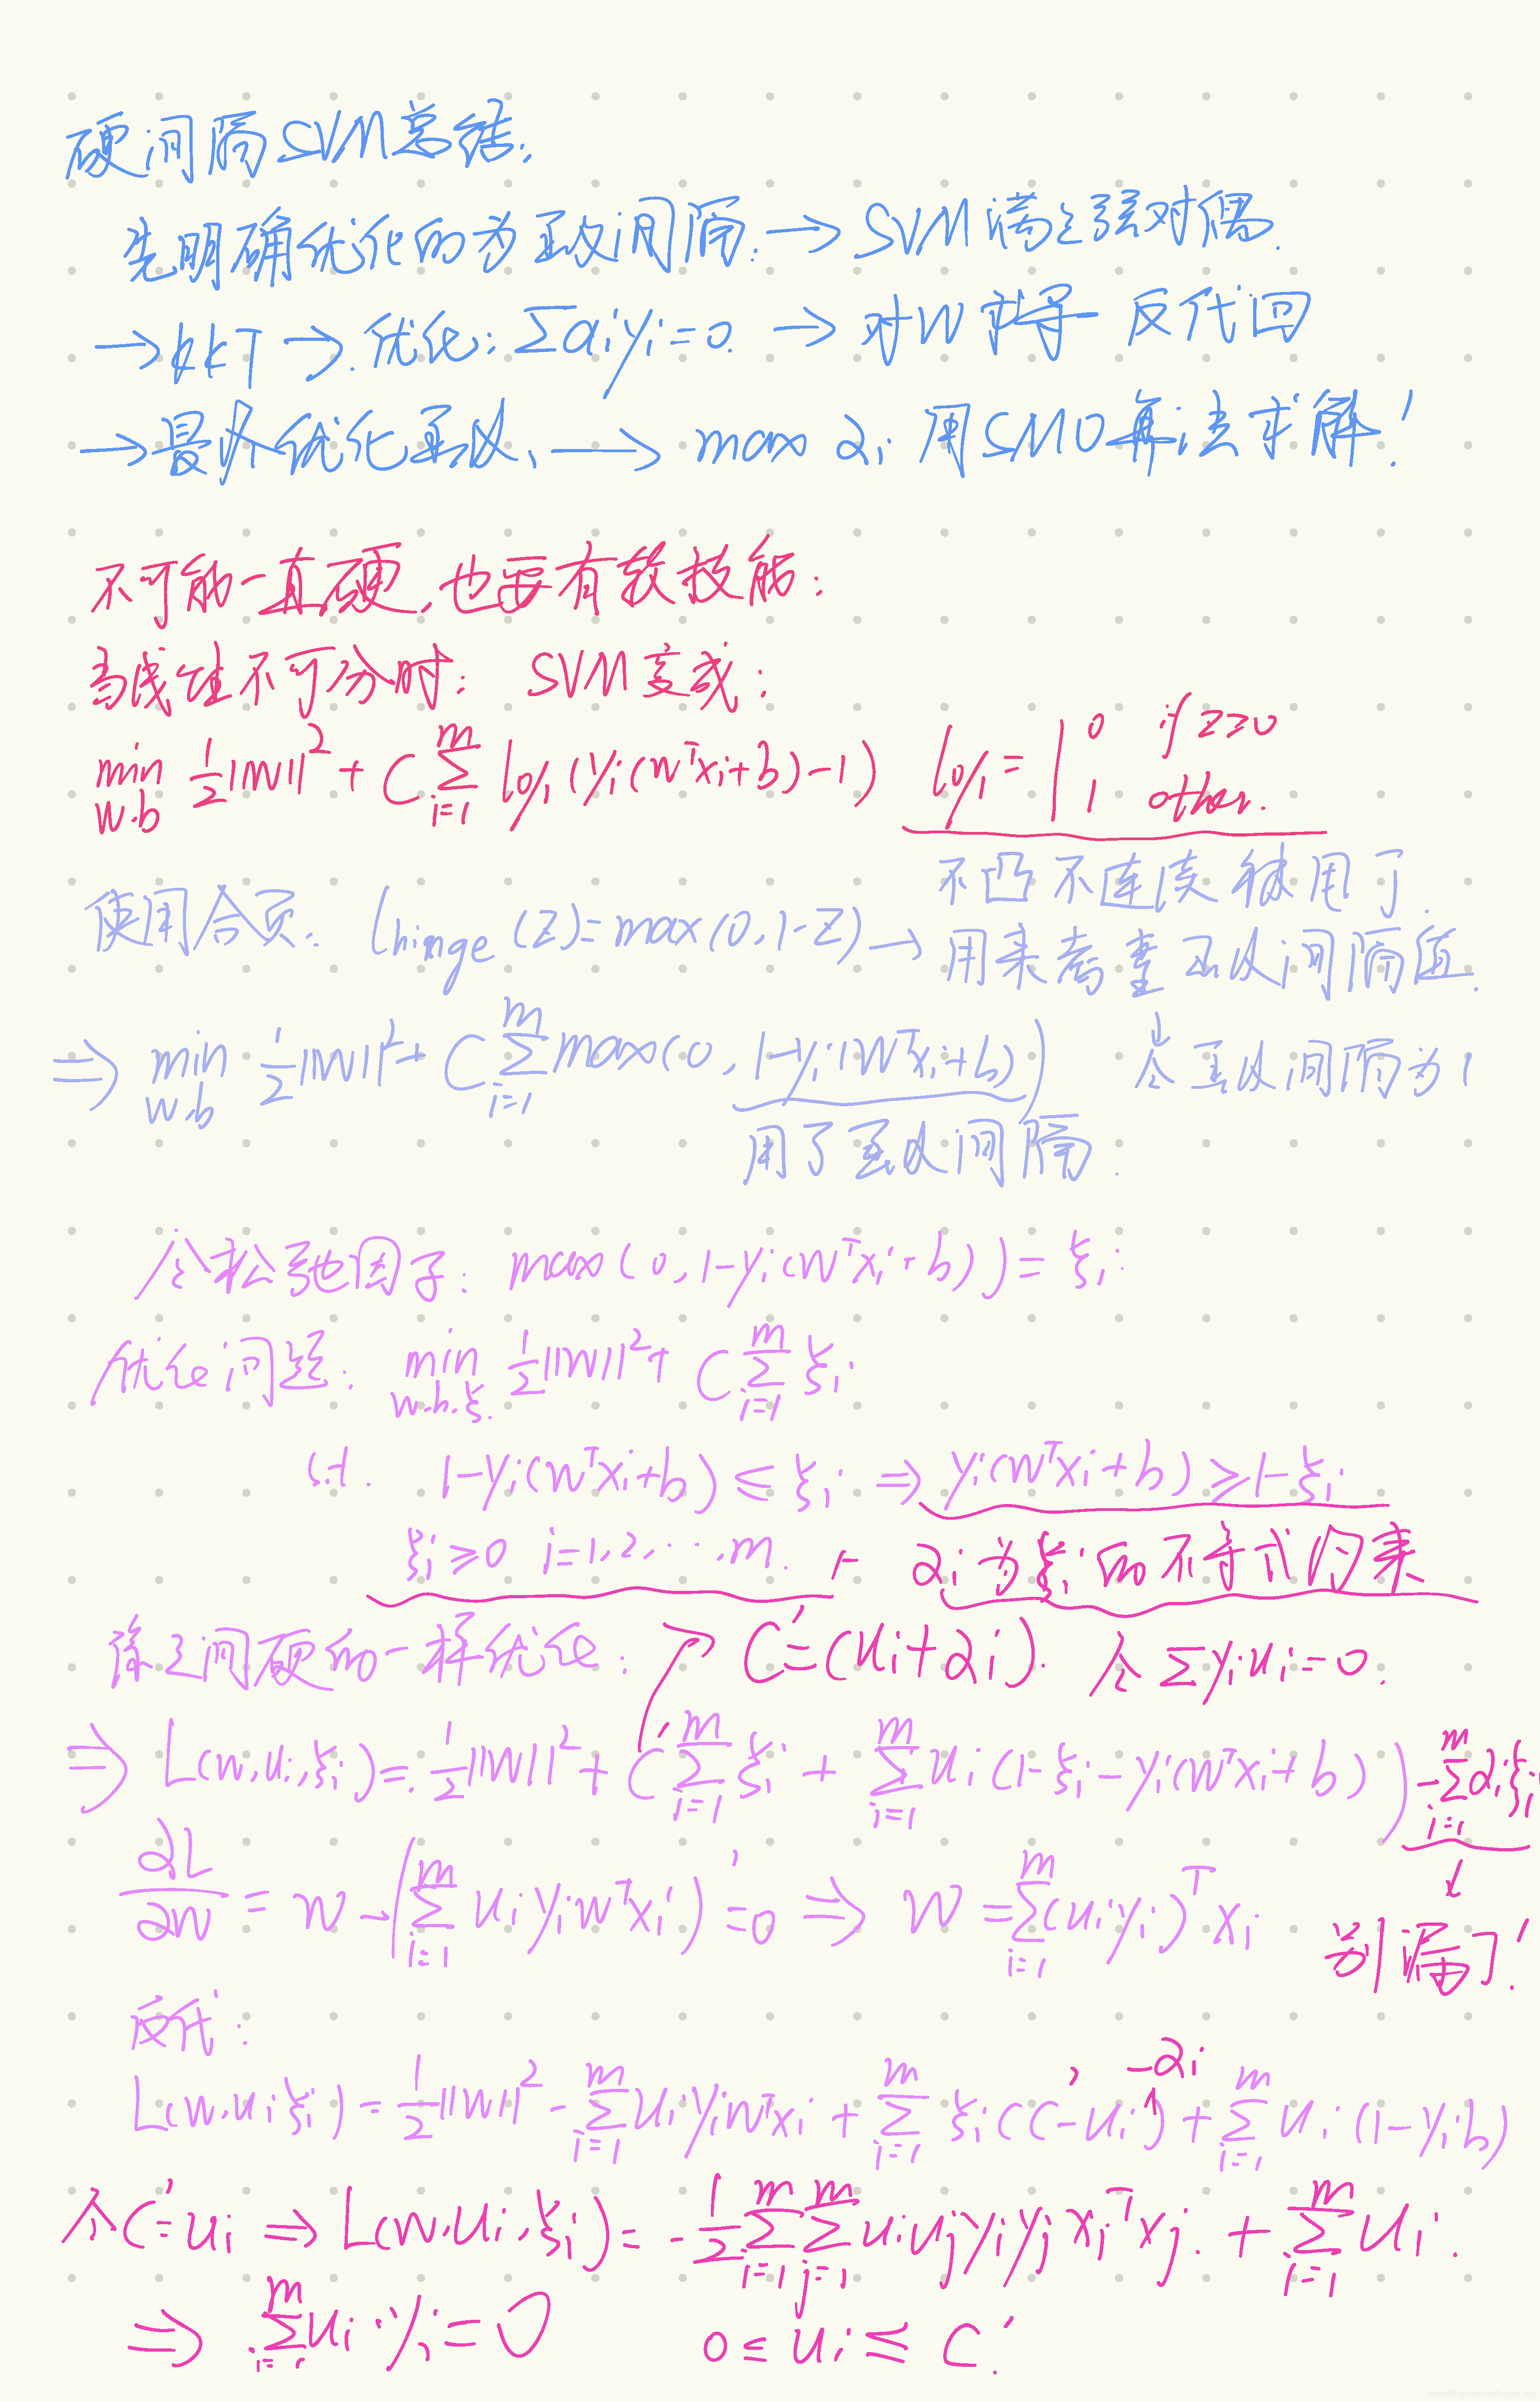 硬间隔SVM总结:
先明确优化的为函数间隔.→SVM满足强对偶.
→KKT→.优化:∑αiyi=0.→对W求导 反代回
→最外优化函数,→max αi 用SMO算法求解!
不可能一直硬,也要有软技能:
当线性不可分时: SVM变成:
min w.b 1/2||W||²+C∑(i=1→m) l0/1(yi(wᵀxi+b)-1) l0/1=| 0 if z≥0
1 other.
不凸不连续 被甩了.
使用合页: lhinge(z)=max(0,1-z)→用来考量函数间隔值.
⇒ min w.b 1/2||W||²+C∑(i=1→m)max(0,1-yi(Wᵀxi+b)) ↓令函数间隔为1
用了函数间隔.
令松弛因子: max(0,1-yi(wᵀxi+b))=ξi.
优化问题: min w.b.ξ. 1/2||W||²+C∑(i=1→m)ξi
s.t. 1-yi(wᵀxi+b)≤ξi⇒yi(wᵀxi+b)≥1-ξi
ξi≥0 i=1,2,···,m. ← αi为ξi的不等式约束
像之间硬的一样优化: ↗ C'=(ui+αi). 令∑yiui=0.
⇒L(w,ui,ξi)=1/2||W||²+C'∑(i=1→m)ξi+∑(i=1→m)ui(1-ξi-yi(wᵀxi+b))-∑(i=1→m)αiξi
∂L/∂w=w-(∑(i=1→m)uiyiwᵀxi)'=0⇒w=∑(i=1→m)(uiyi)ᵀxi
↓别漏了!
反代:
L(w,uiξi)=1/2||W||²-∑(i=1→m)uiyiwᵀxi+∑(i=1→m)ξi(C'-ui-αi)+∑(i=1→m)ui(1-yib)
令C'=ui⇒L(w,ui,ξi)=-1/2∑(i=1→m)∑(j=1→m)uiujyiyjxiᵀxj.+∑(i=1→m)ui.
⇒∑(i=1→m)uiyi=0 0≤ui≤C'.